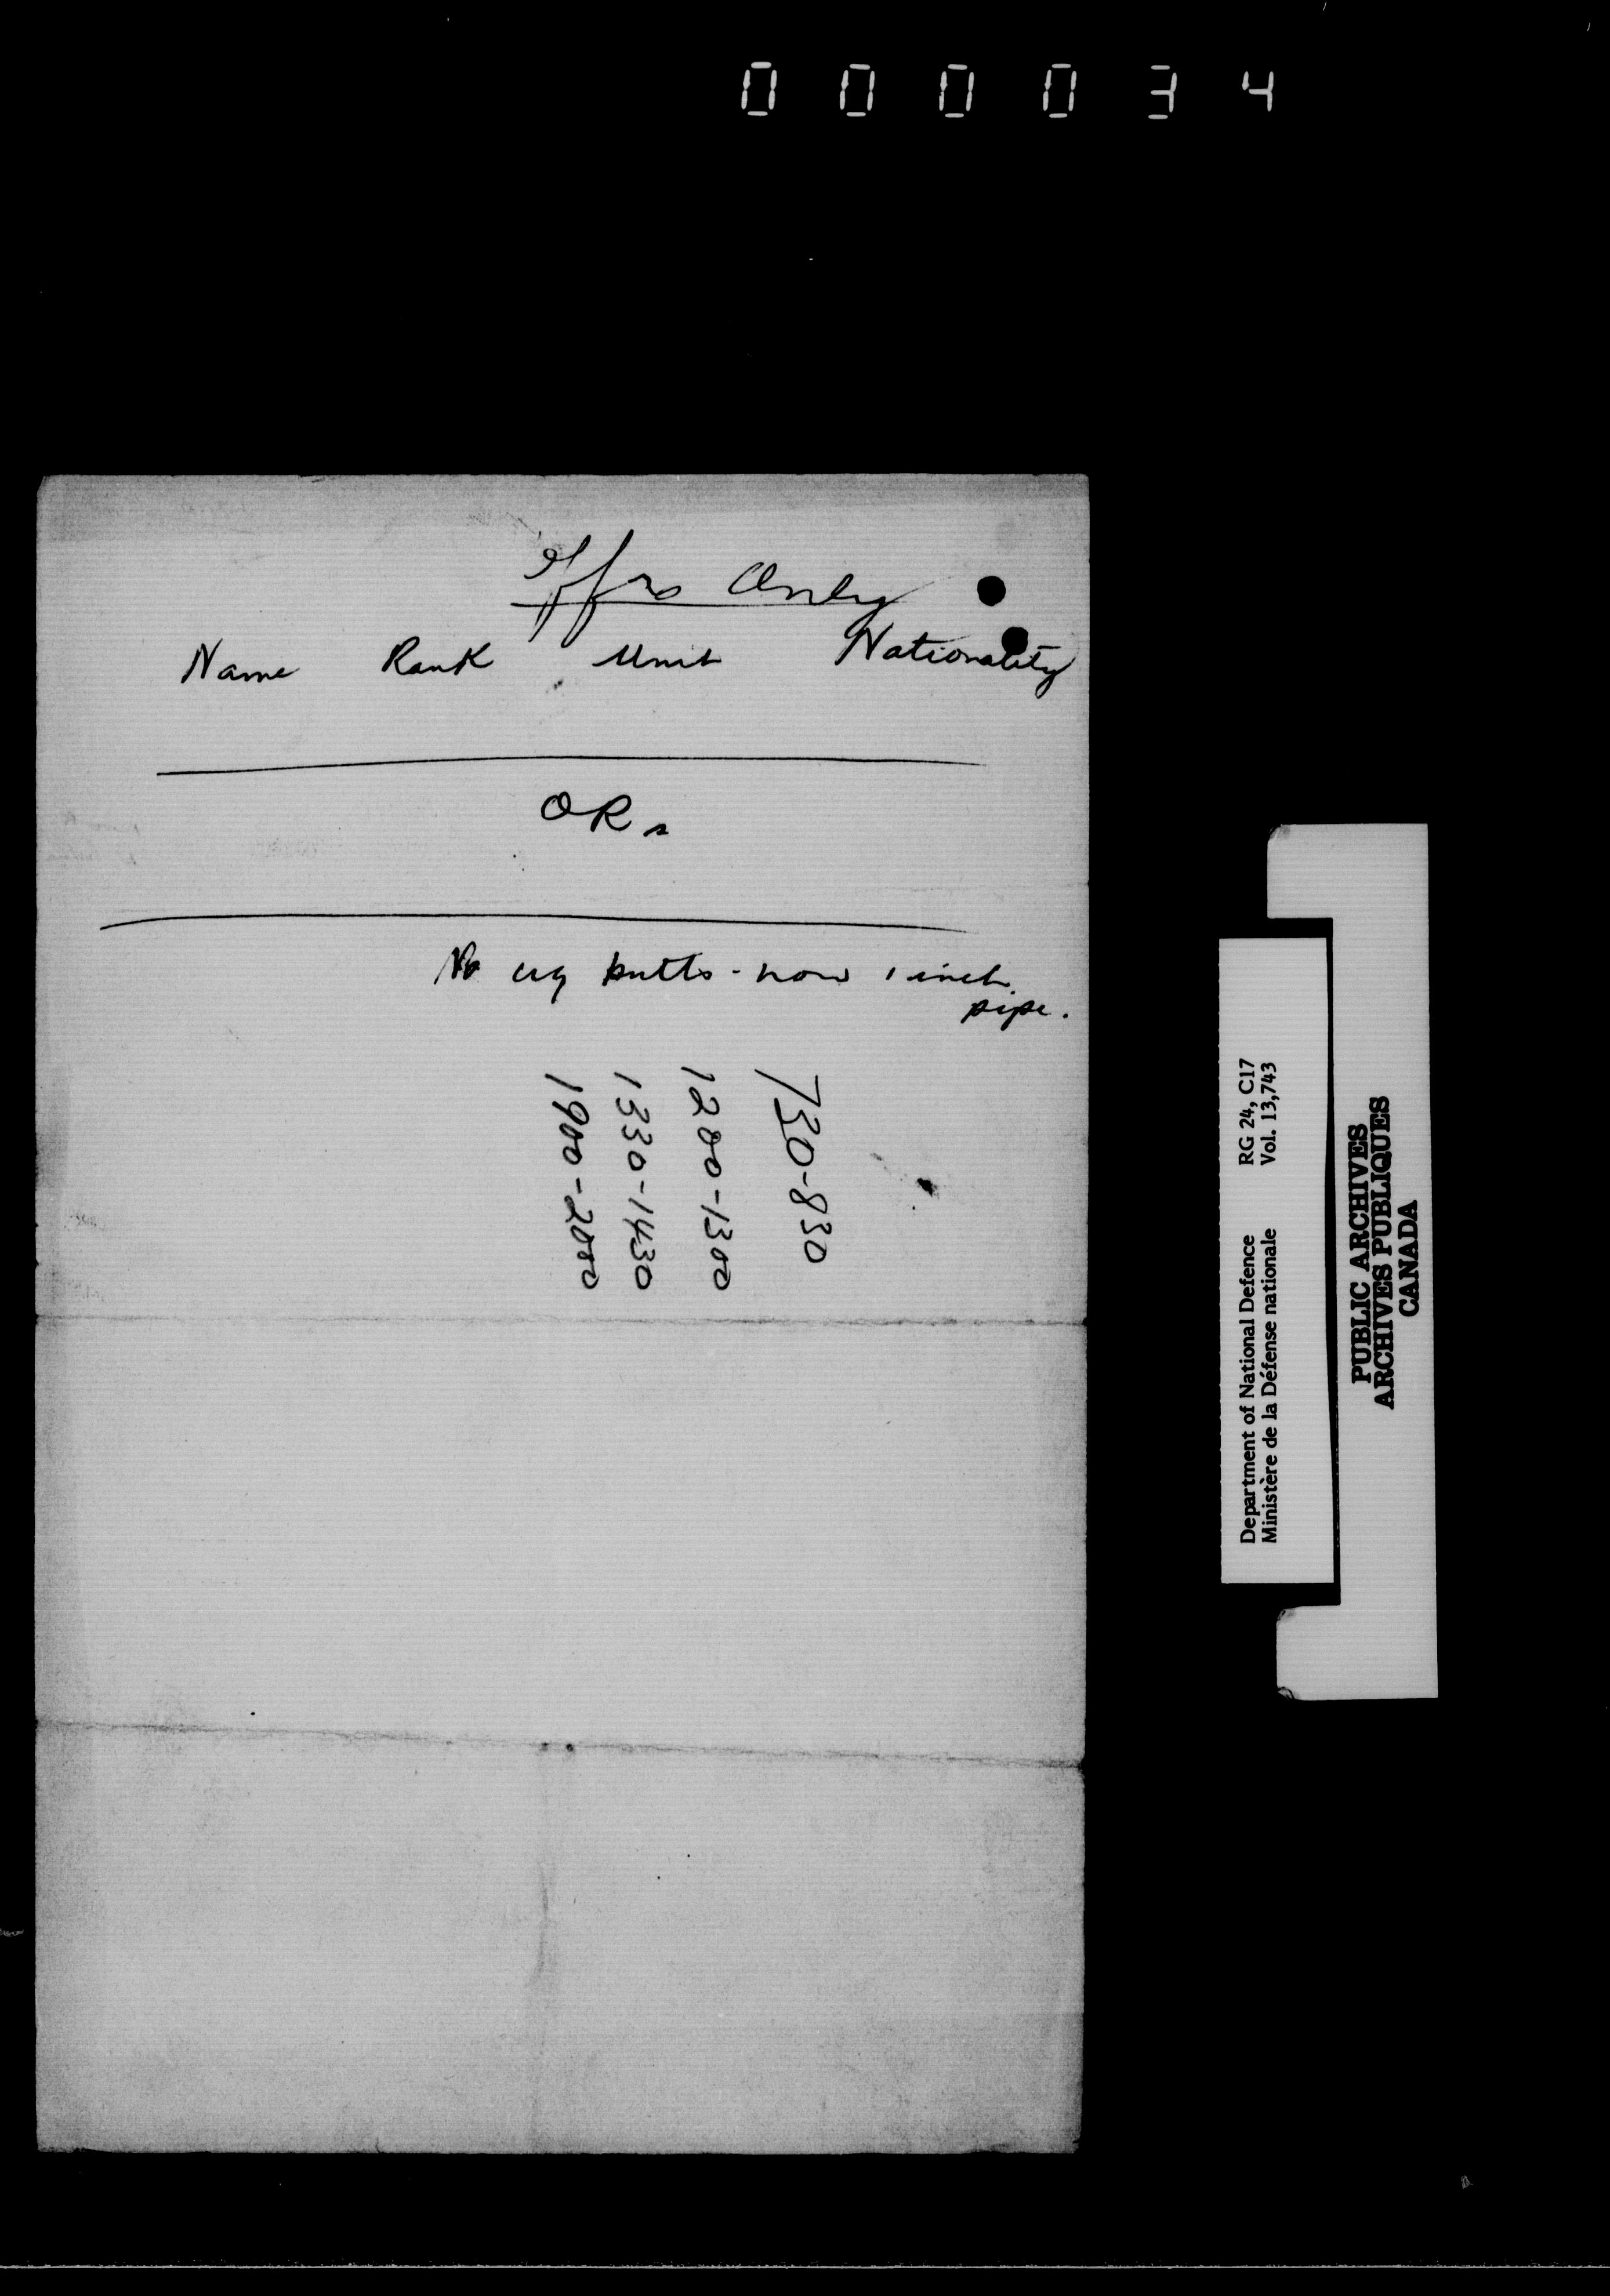 000034
Offrs Only
Name Rank Unit Nationality
ORs
No cig butts - now 1 inch
pipe.
730-830
1200-1300
1330-1430
1900-2000
Department of National Defence RG 24, C17
Ministère de la Défense nationale Vol. 13,743
PUBLIC ARCHIVES
ARCHIVES PUBLIQUES
CANADA